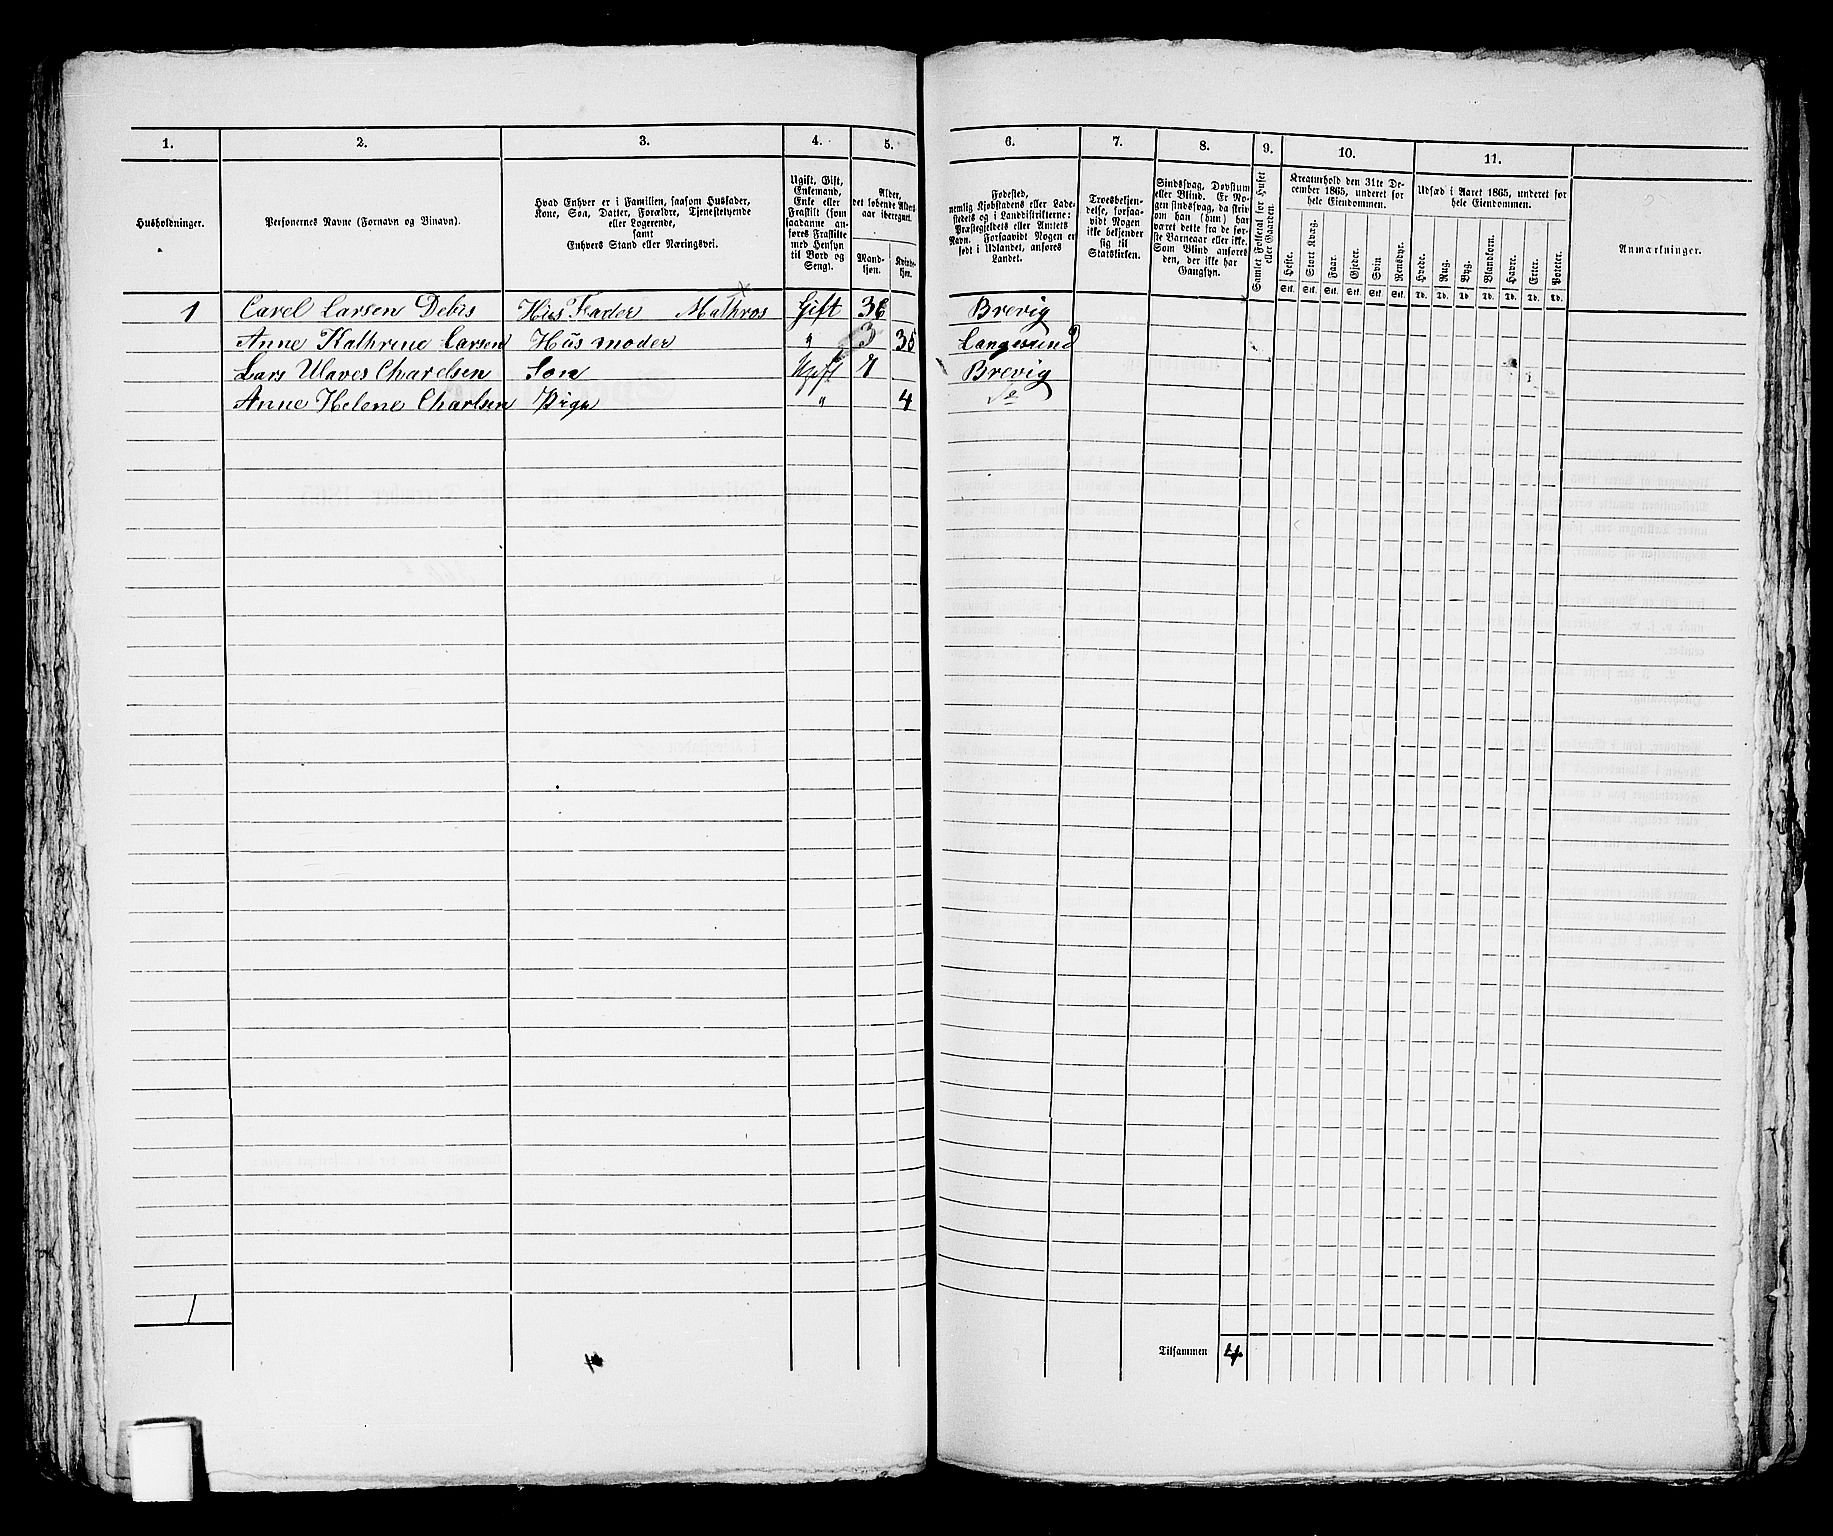 1.
2.
3.
4.
5.
6.
7.
8.
9.
10.
11.
Husholdninger.
Personernes Navne (Fornavn og Binavn).
Hvad Enhver er i Familien, saasom Husfader,
Kone, Søn, Datter, Forældre, Tjenestetyende
eller Logerende,
samt
Enhvers Stand eller Næringsvei.
Ugift, Gift,
Enkemand,
Enke eller
Fraskilt (som
saadanne an-
føres Fraskilte
med Hensyn
til Bord og
Seng).
Alder,
det løbende Alders-
aar iberegnet.
Mand-
kjøn.
Kvinde-
kjøn.
Fødested,
nemlig Kjøbstadens eller Lade-
stedets og i Landdistrikterne:
Præstegjeldets eller Amtets
Navn. Forsaavidt Nogen er
født i Udlandet, anføres
Landet.
Troesbekjen-
delse, forsaa-
vidt Nogen
ikke bekjender
sig til
Statskirken.
Sindssvag, Døvstum
eller Blind. Er No-
gen sindssvag, da skriv
om han (hun) har
været dette fra de før-
ste Barneaar eller ikke.
Som Blind anføres
den, der ikke har
Gangsyn.
Samlet Folketal for Huset
eller Gaarden.
Kreaturhold den 31te De-
cember 1865, underet for
hele Eiendommen.
Heste. Stort Kvæg. Faar. Gjeder. Svin. Rensdyr.
Stk. Stk. Stk. Stk. Stk. Stk.
Udsæd i Aaret 1865, underet for
hele Eiendommen.
Hvede. Rug. Byg. Blandkorn. Havre. Erter. Poteter.
Td. Td. Td. Td. Td. Td. Td.
Anmærkninger.
1 Carel Larsen Debes Hus Fader Mathros Gift 36 Brevig
Anne Kathrine Larsen Hus moder " 3 35 Langesund
Lars Ulaves Charelsen Søn Ugift 1 Brevig
Anne Helene Charlsen Pige " 4
1
Tilsammen 4.